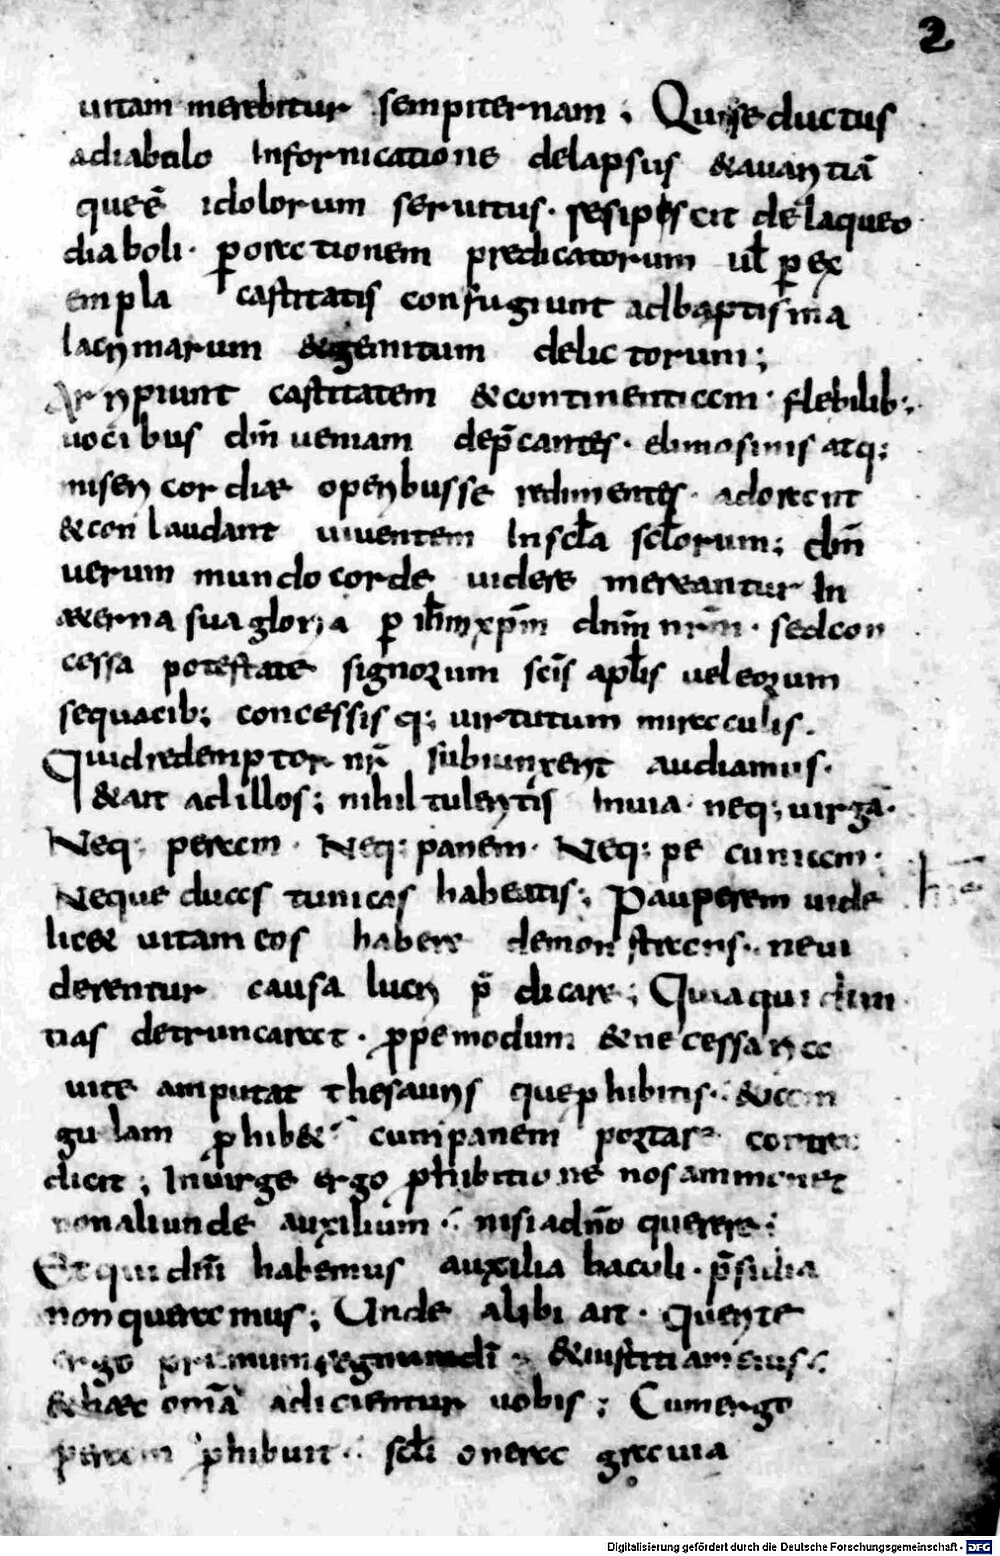 2
uitam merebitur sempiternam ; Qui seductus
adiabulo Infornicatione delapsus &auaritiā
queē idolorum seruitus · resipiscit delaqueo
diaboli · p̄orationem predicatorum ul̄ p̄ ex
empla castitatis confugiunt adbaptisma
lacrimarum &gemitum delictorum ;
Arripiunt castitatem &continentiam · flebilib ;
uocibus dm̄ ueniam dep̄cantes · elimosinis atq ;
misericordiae operibusse redimentes · adorant
&conlaudant uiuentem Inscl̄a scl̄orum ; dm̄
uerum mundo corde uidere mereantur In
aeterna sua gloria p̄ ih̄m xp̄m dnm̄ nrm̄ · sedcon
cessa potestate signorum scīs apl̄is uel eorum
sequacib ; concessis q ; uirtutum miraculis .
Quid redemptor nr̄ subiunxerit audiamus ·
&ait adillos ; nihil tuleritis Inuia · neq ; uirgā ·
Neq ; peram · Neq ; panem · Neq ; pecuniam ·
Neque duas tunicas habeatis ; Pauperem uide
lic& uitam eos habere demonstrans · neui
derentur causa lucri p̄dicare ; Quia qui diui
tias detruncaret · p̄pemodum &necessaria
uite amputat thesauris que p̄hibitis · &iam
gulam p̄hib& cum panem portare contra
dicit ; Inuirge ergo p̄hibitione nos ammonet
non aliunde auxilium · nisi ad dn̄o querere ;
Et qui dm̄ habemus auxilia baculi · p̄sidia
non queramus ; Unde alibi ait · Querite
ergo primum regnum dī &iustitiam eius
&haec omā adicientur uobis ; Cum ergo
peram p̄hibuit scl̄i onera grauia
Digitalisierung gefördert durch die Deutsche Forschungsgemeinschaft - DFG